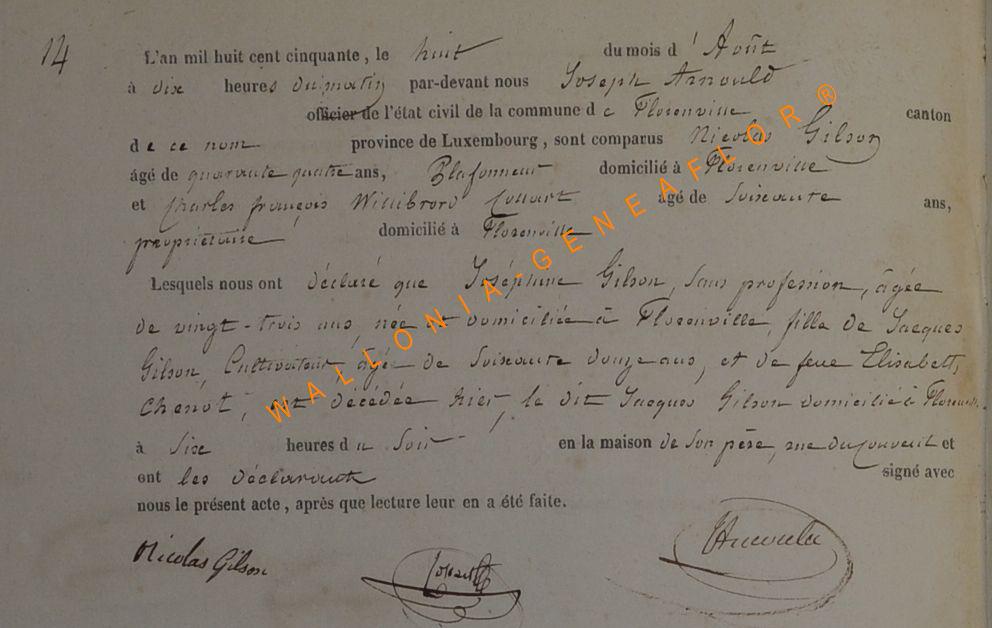 14
L'an mil huit cent cinquante, le huit du mois d'Août
à dix heures du matin par-devant nous Joseph Arnould
officier de l'état civil de la commune de Florenville canton
de ce nom province de Luxembourg, sont comparus Nicolas Gilson
âgé de quarante quatre ans, Plafonneur domicilié à Florenville
et Charles françois Willibrord Collart âgé de Soixante ans,
propriétaire domicilié à Florenville
Lesquels nous ont déclaré que Joséphine Gilson, sans profession, âgée
de vingt-trois ans, née et domiciliée à Florenville, fille de Jacques
Gilson, Cultivateur âgé de Soixante douze ans, et de feue Elisabeth
Chenot, est décédée hier, le dit Jacques Gilson domicilié à
à Six heures du Soir en la maison de son père, rue du Couvent et
ont les déclarants signé avec
nous le présent acte, après que lecture leur en a été faite.
Nicolas Gilson
WALLONIA-GENEAFLOR®